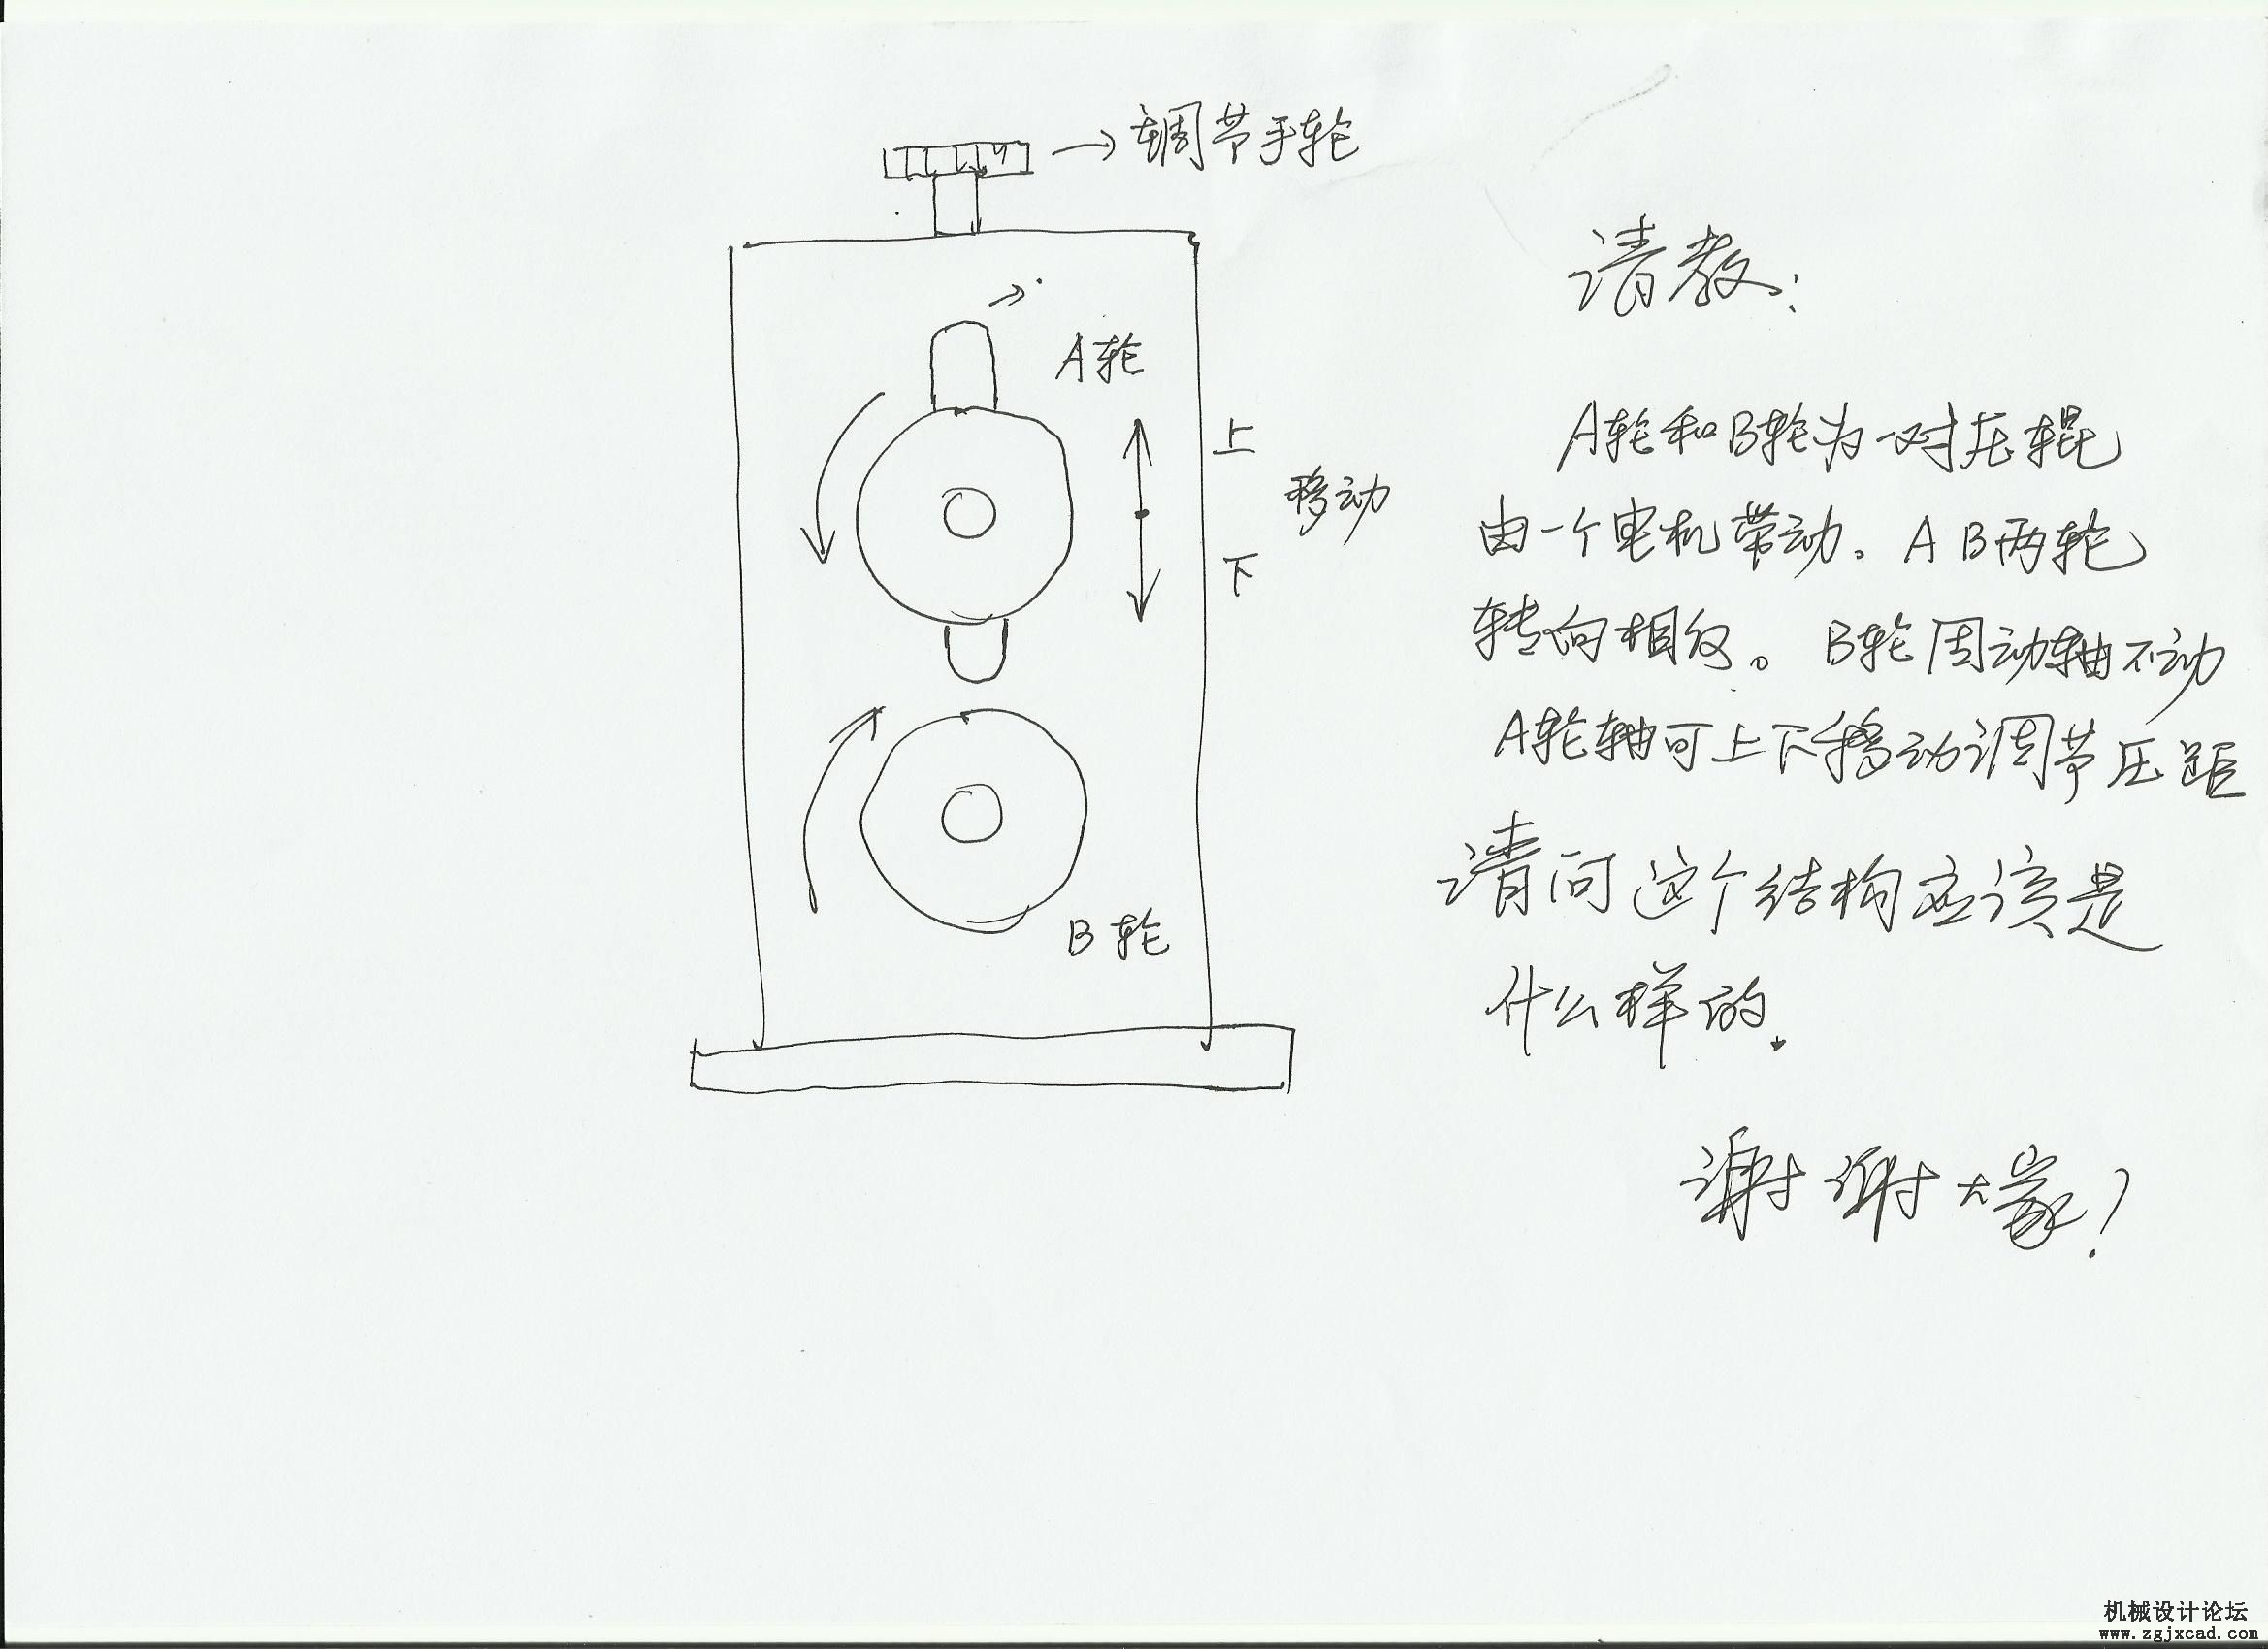 调节手轮
A轮
上
移动
下
B轮
请教：
A轮和B轮为一对压辊
由一个电机带动。A B两轮
转向相反。B轮固动轴不动
A轮轴可上下移动调节压距
请问这个结构应该是
什么样的.
谢谢大家!
机械设计论坛
www.zgjxcad.com